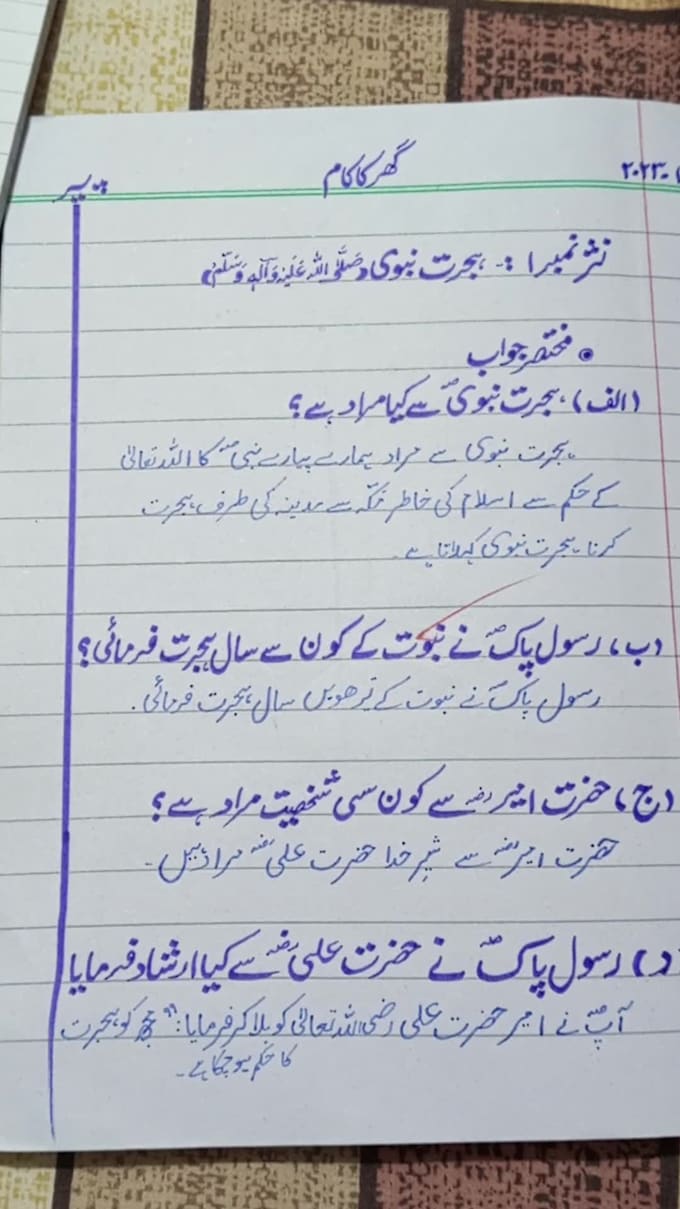 پیر گھر کا کام ۲۰۲۳
نثر نمبر ۱ :- ہجرت نبوی (صَلَّی اللہ عَلَیْہِ وَآلِہٖ وَسَلَّمْ)
• مختصر جواب
(الف) ہجرت نبویؐ سے کیا مراد ہے؟
ہجرت نبوی سے مراد ہمارے پیارے نبیؐ کا اللہ تعالیٰ
کے حکم سے اسلام کی خاطر مکہ سے مدینہ کی طرف ہجرت
کرنا ہجرت نبوی کہلاتا ہے۔
(ب) رسول پاکؐ نے نبوت کے کون سے سال ہجرت فرمائی؟
رسول پاکؐ نے نبوت کے تیرھویں سال ہجرت فرمائی۔
(ج) حضرت امیرؓ سے کون سی شخصیت مراد ہے؟
حضرت امیرؓ سے شیر خدا حضرت علیؓ مراد ہیں۔
(د) رسول پاکؐ نے حضرت علیؓ سے کیا ارشاد فرمایا
آپؐ نے امیر حضرت علی رضی اللہ تعالیٰ کو بلا کر فرمایا: "مجھ کو ہجرت
کا حکم ہو چکا ہے۔